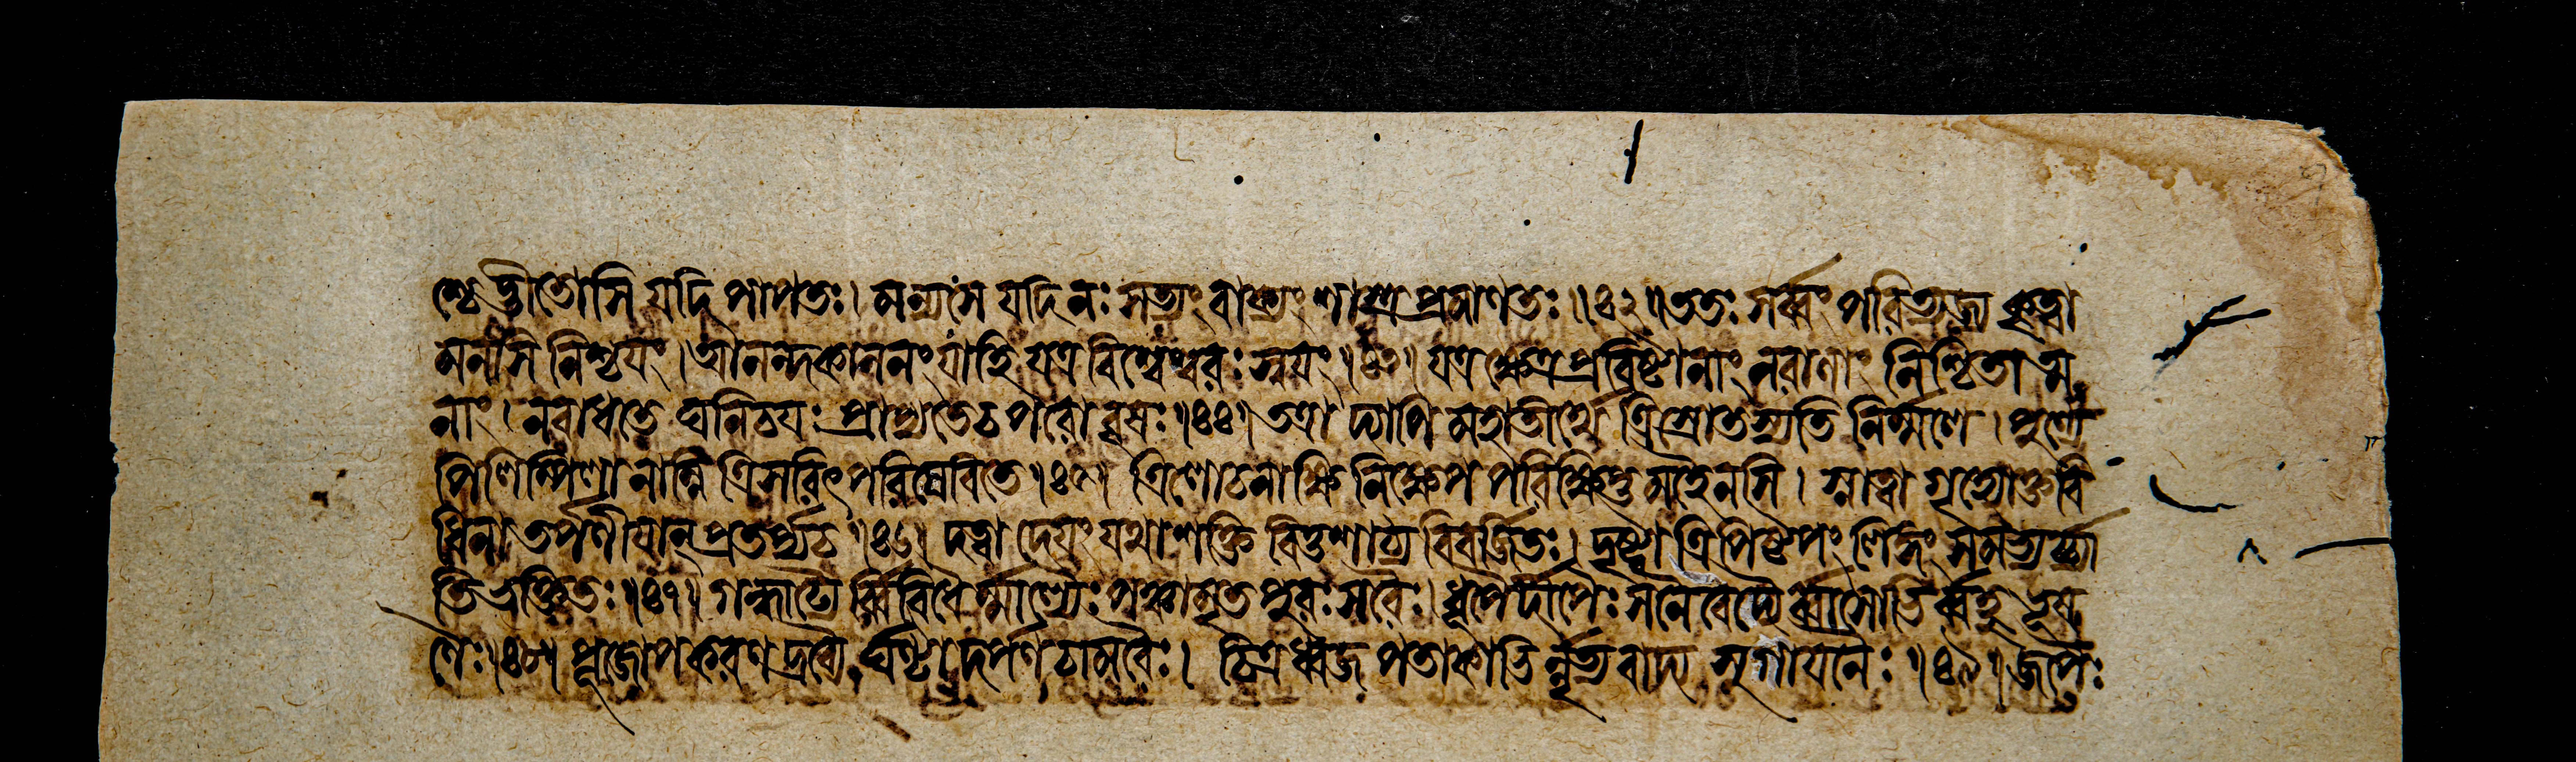 শ্চেদ্ভীতোসি যদি পাপতঃ। মন্যসে যদি নঃ সত্যং বাক্যং শাস্ত্রপ্রমাণতঃ॥৪২॥ ততঃ সর্ব্বং পরিত্যজ্য কৃত্বা
মনসি নিশ্চয়ং। আনন্দকাননং যাহি যত্র বিশ্বেশ্বরঃ স্বয়ং॥৪৩॥ যত্র ক্ষেত্রপ্রবিষ্টানাং নরাণাং নিশ্চিতাত্ম
নাং। ন বাধতে ঘনিচয়ঃ প্রাপ্যতে চ পরো বৃষঃ॥৪৪॥ তত্রাদ্যাপি মহাতীর্থে ত্রিস্রোতস্যতি নির্ম্মলে। পুণ্যে
পিলিপ্পিলানাম্নি ত্রিসরিৎপরিষেবিতে॥৪৫॥ ত্রিলোচনাক্ষিনিক্ষেপপরিক্ষিপ্তমহৈনসি। স্নাত্বা গৃহ্যোক্তবি
ধিনা তর্পণীয়ান্ প্রতর্প্য চ॥৪৬॥ দত্বা দেয়ং যথাশক্তি বিত্তশাঠ্যবিবর্জিতঃ। দৃষ্ট্বা ত্রিপিষ্টপং লিঙ্গং সমভ্যর্চ্যা
তিভক্তিতঃ॥৪৭॥ গন্ধাদ্যৈর্ব্বিবিধৈর্ম্মাল্যৈঃ পঞ্চামৃতপুরঃসরৈঃ। ধূপৈর্দীপৈঃ সনৈবেদ্যৈর্ব্বাসোভির্ব্বহুভূষ
ণৈঃ॥৪৮॥ পূজোপকরণদ্রব্যৈর্ঘণ্টাদর্পণচামরৈঃ। চিত্রধ্বজপতাকাভির্নৃত্যবাদ্যসুগায়নৈঃ॥৪৯॥ জপৈঃ